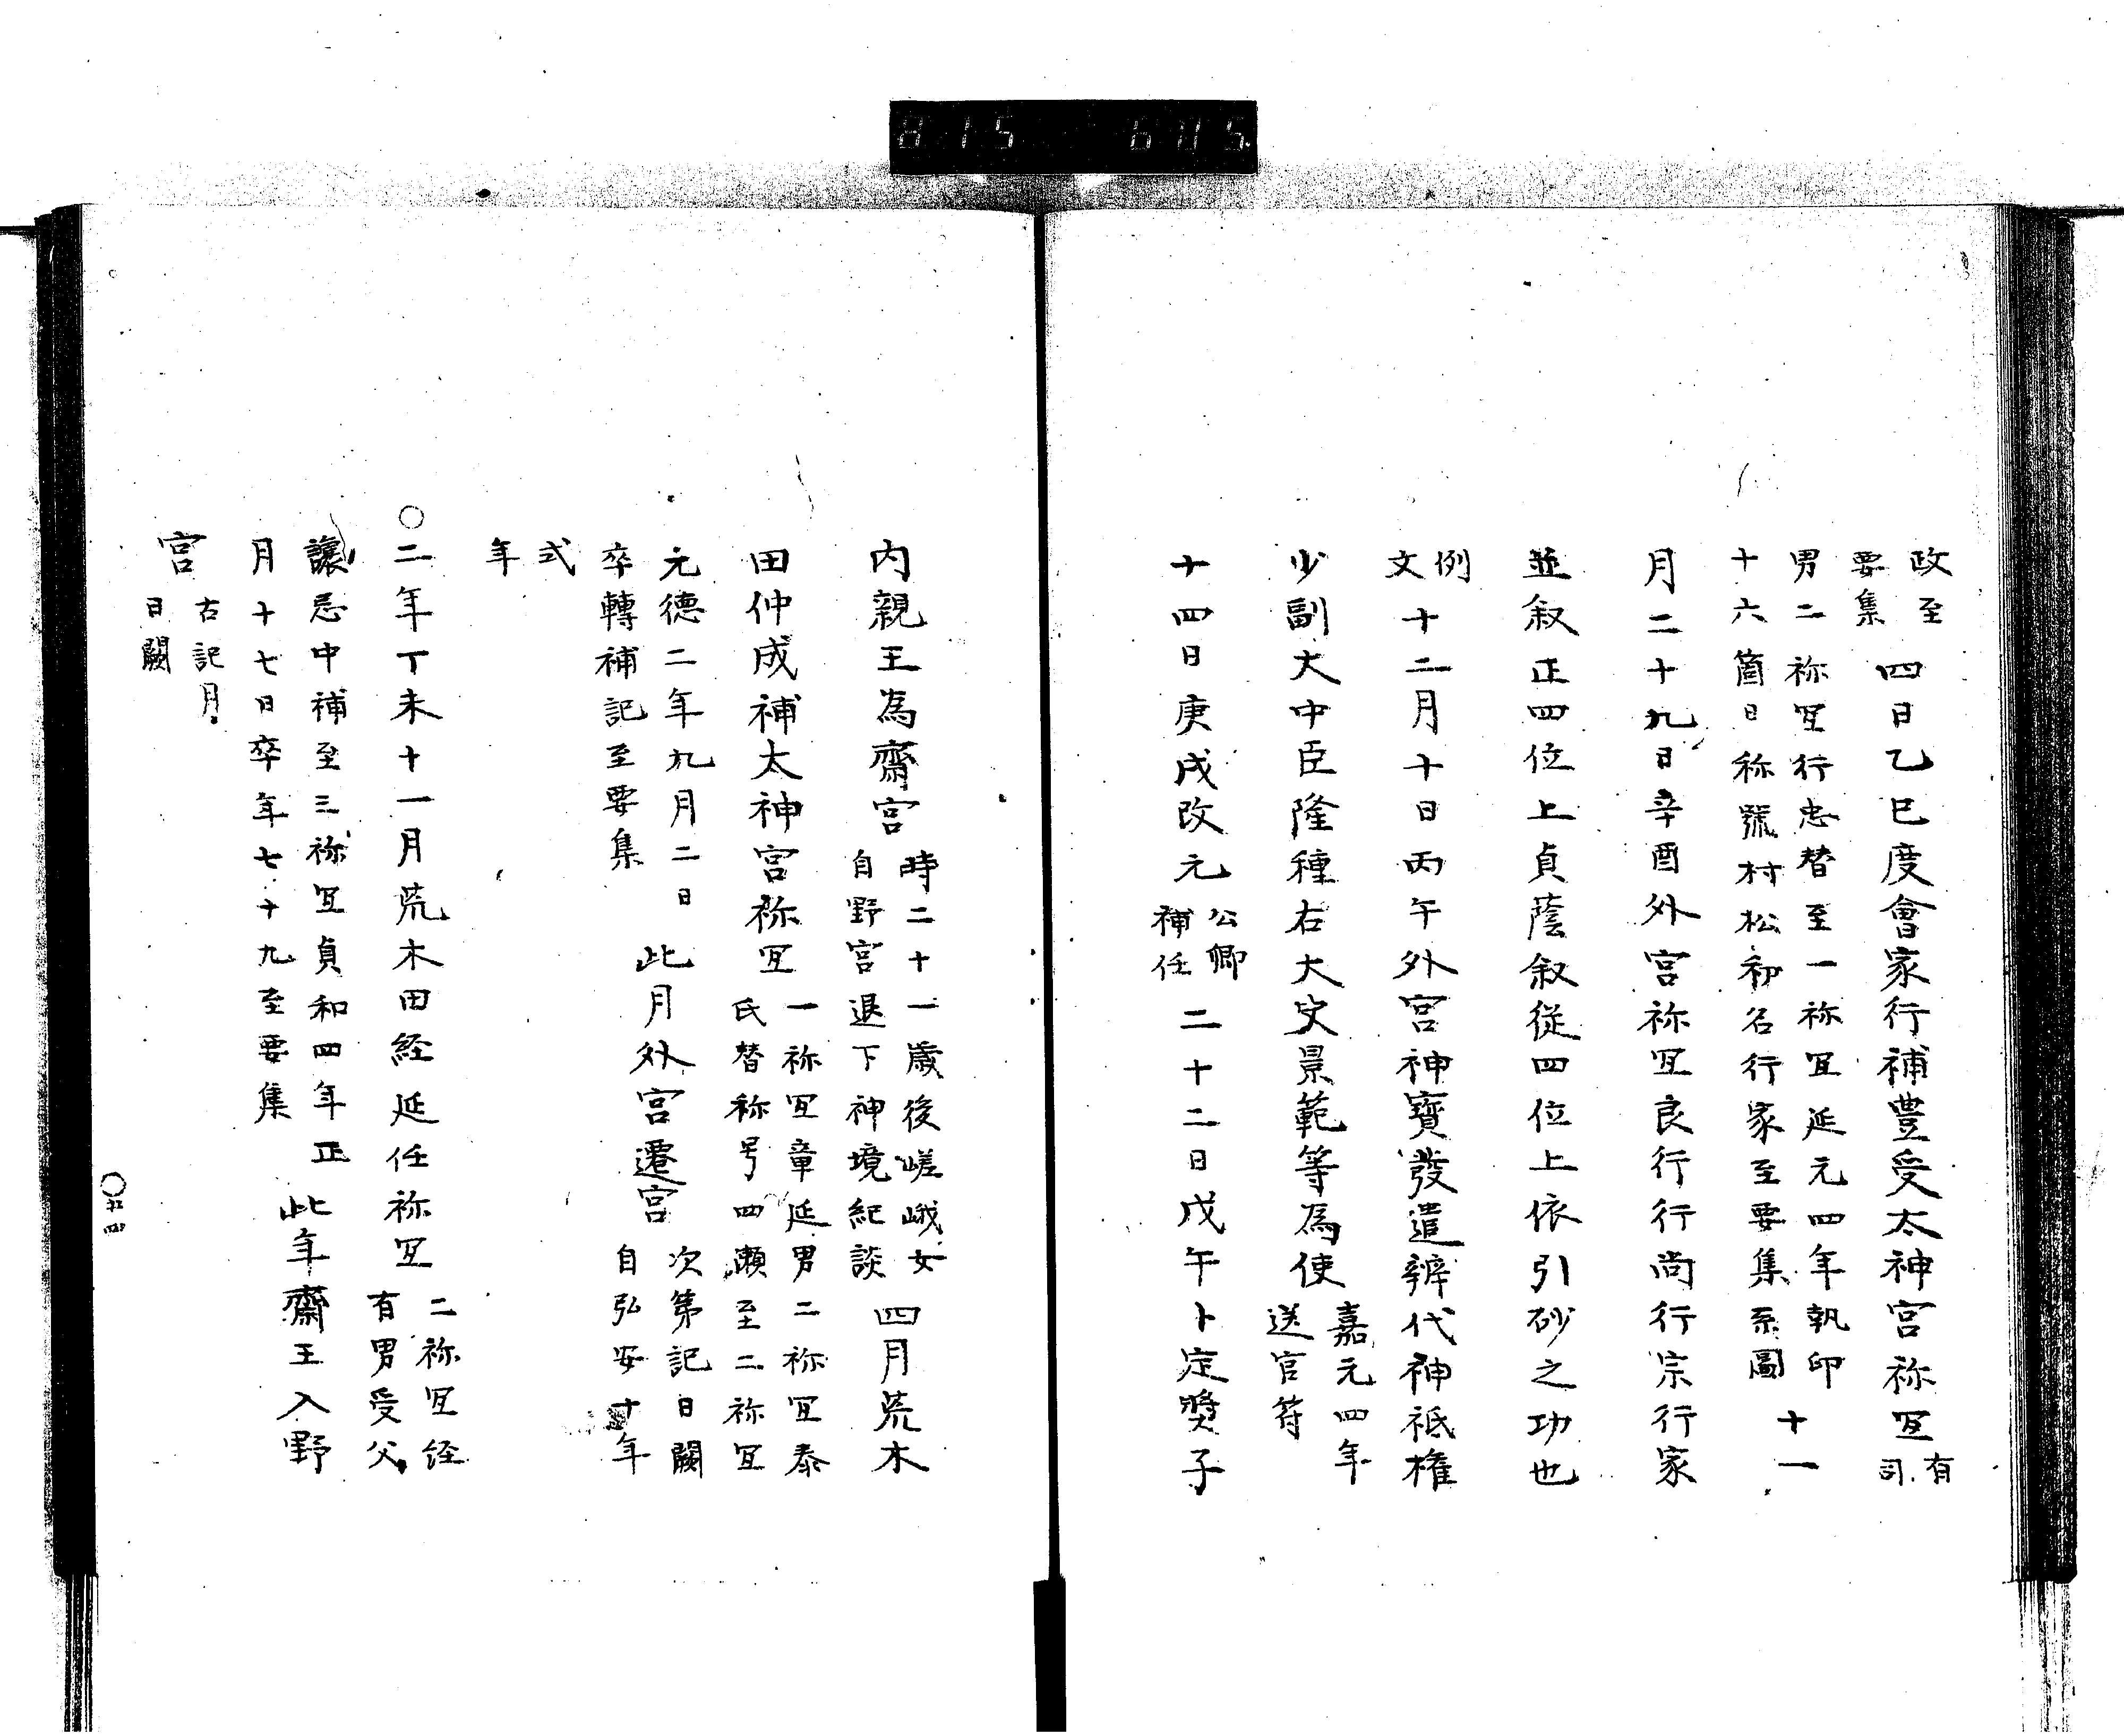 815 6115
政至要集 四日乙巳度會家行補豊受太神宮祢冝 有司
男二祢冝行忠替至一祢冝延元四年執印
十六箇日称號村松初名行家至要集系圖 十一
月二十九日辛酉外宮祢冝良行行尚行宗行家
並叙正四位上貞蔭叙從四位上依引砂之功也
例文 十二月十日丙午外宮神寶發遣辨代神祇権
少副大中臣隆種右大史景範等為使 嘉元四年送官苻
十四日庚戌改元 公卿補任 二十二日戊午卜定奬子
内親王為齋宮 時二十一歳後嵯峨女自野宮退下神境紀談 四月荒木
田仲成補太神宮祢冝 一祢冝章延男二祢冝泰氏替称号四瀬至二祢冝
元德二年九月二日卒轉補記至要集 此月外宮遷宮 次第記日闕自弘安十年
式年
○二年丁未十一月荒木田経延任祢冝 二祢冝経有男受父
讓忌中補至三祢冝貞和四年正
月十七日卒年七十九至要集 此年齋王入野
宮 古記月日闕
〇五四